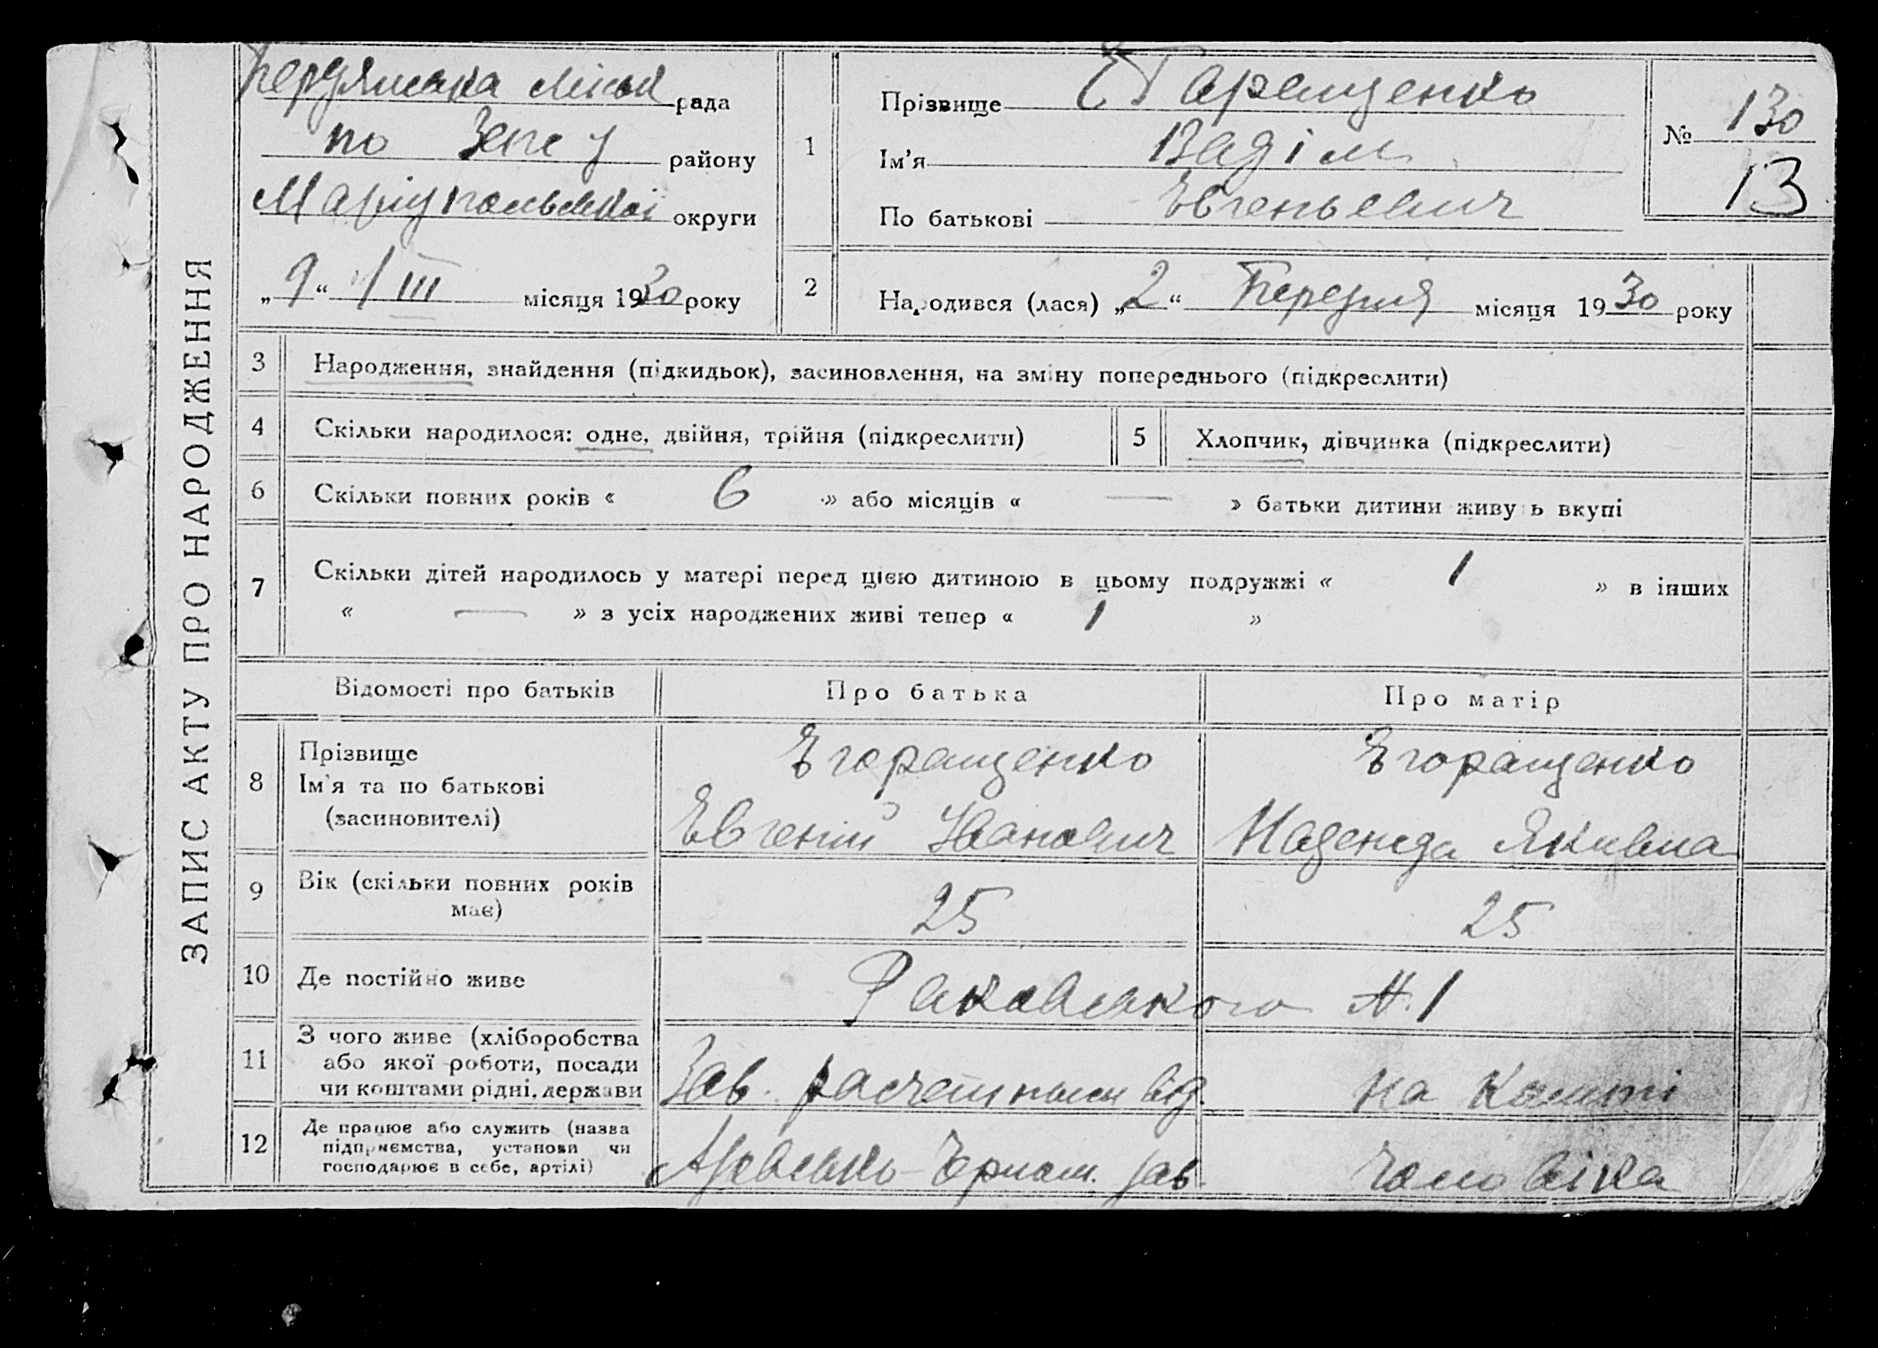 ЗАПИС АКТУ ПРО НАРОДЖЕННЯ
Бердянська міськ рада
по Загсу району
Маріупольської округи
„ 9 “ / III місяця 1930 року
1
Прізвище Гаращенко
Ім'я Вадім
По батькові Евгеньевич
№ 130
13
2
Народився (лася) „ 2 “ Березня місяця 1930 року
3 Народження, знайдення (підкидьок), засиновлення, на зміну попереднього (підкреслити)
4 Скільки народилося: одне, двійня, трійня (підкреслити)
5 Хлопчик, дівчинка (підкреслити)
6 Скільки повних років « 6 » або місяців « — » батьки дитини живуть вкупі
7 Скільки дітей народилось у матері перед цією дитиною в цьому подружжі « 1 » в інших
« — » з усіх народжених живі тепер « 1 »
Відомості про батьків Про батька Про матір
8 Прізвище
Ім'я та по батькові
(засиновителі)
Егоращенко
Евгеній Іванович
Егоращенко
Надежда Якивна
9 Вік (скільки повних років
має)
25 25
10 Де постійно живе Раковського №.1
11 З чого живе (хліборобства
або якої роботи, посади
чи коштами рідні, держави
Зав. расчетным від. на кошті
12 Де працює або служить (назва
підприємства, установи чи
господарює в себе, артілі)
Азовсько-Чорном. зав. чоловіка